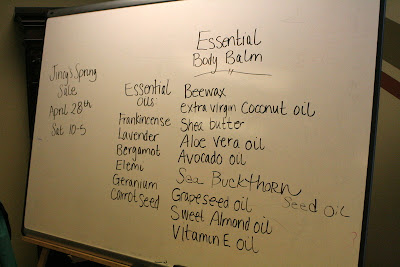 Essential
Body Balm
Jincy's Spring
Sale
April 28th
Sat 10-5
Essential
oils
Frankincense
Lavender
Bergamot
Elemi
Geranium
Carrot Seed
Beewax
extra virgin Coconut oil
Shea butter
Aloe Vera oil
Avocado oil
Sea Buckthorn
Seed oil
Grapeseed oil
Sweet Almond oil
Vitamin E oil